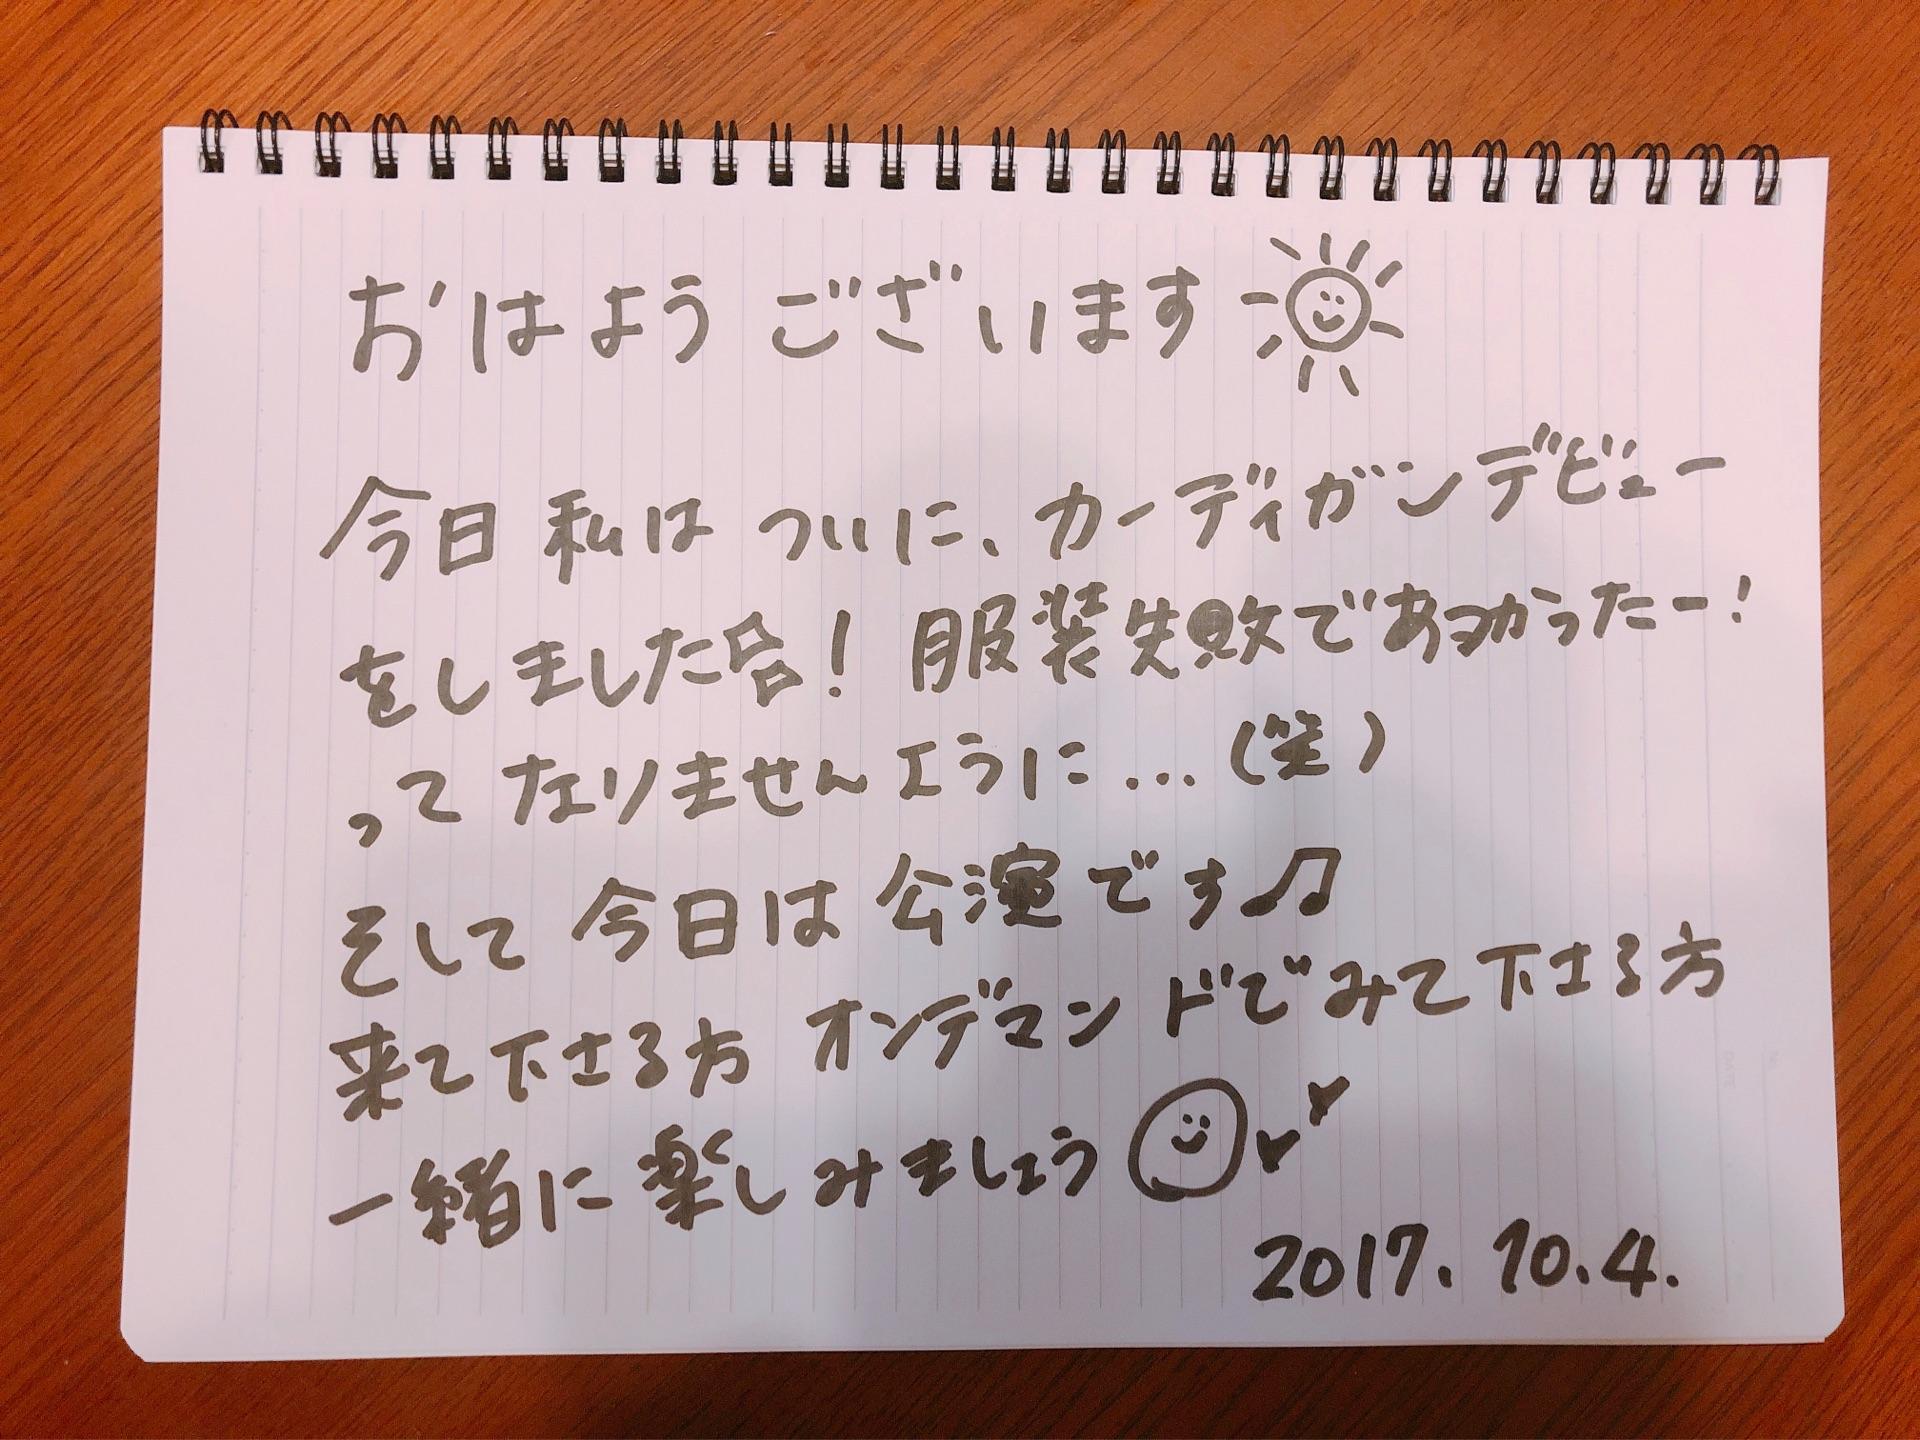 おはようございます
今日私はついに、カーディガンデビュー
をしました!服装失敗であつかったー!
ってなりませんように…(笑)
そして今日は公演です♫
来て下さる方オンデマンドでみて下さる方
一緒に楽しみましょう
2017.10.4.